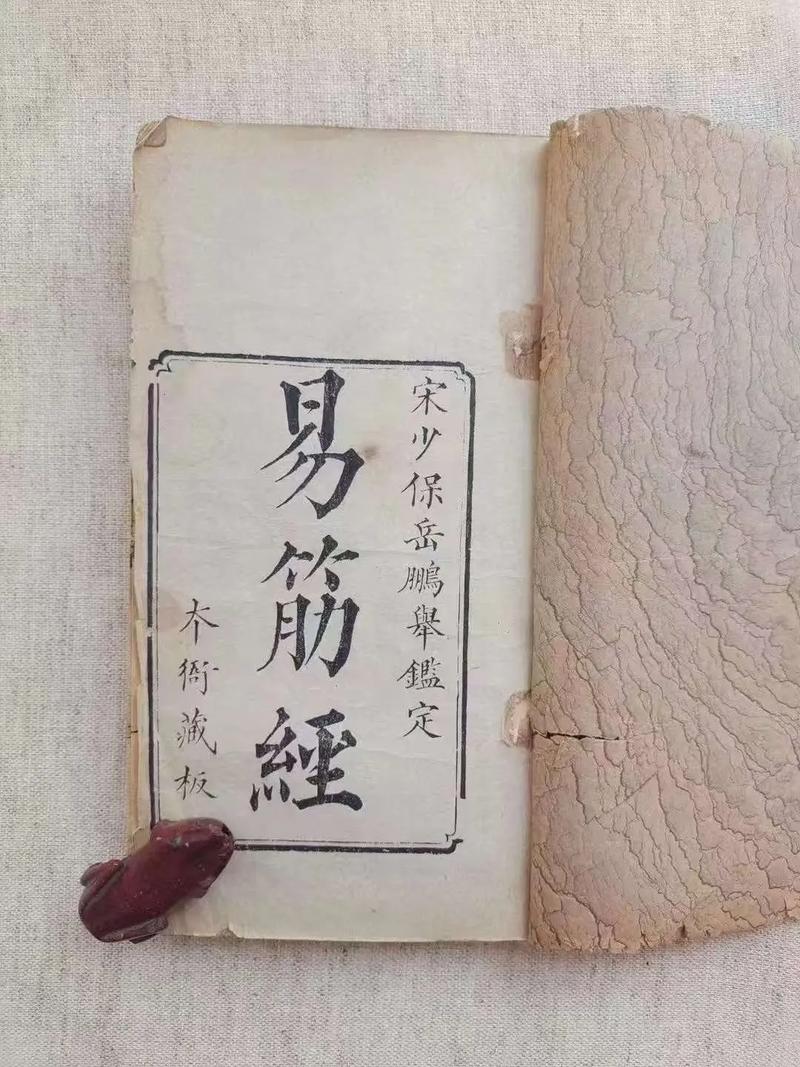 宋少保岳鵬舉鑑定
易筋經
本衙藏板